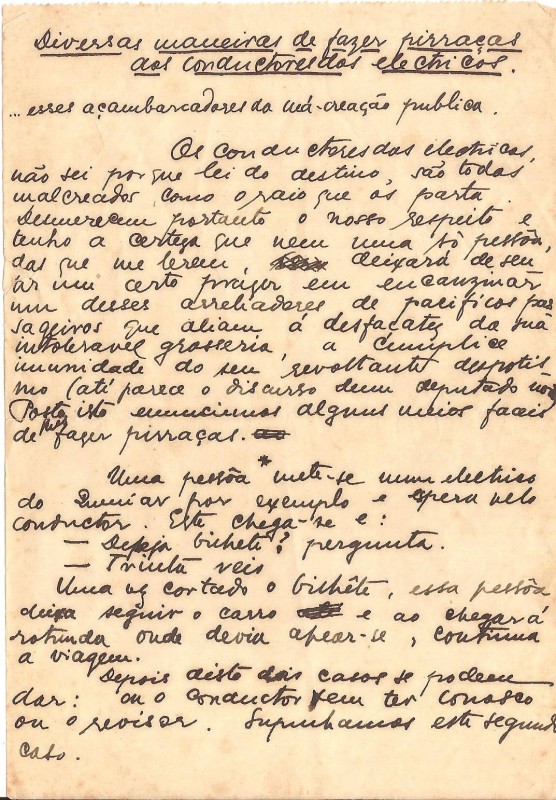 Diversas maneiras de fazer pirraças
aos conductores dos electricos.
... esses açambarcadores da má-creação publica.
Os conductores dos electricos,
não sei porque lei do destino, são todos
malcreados como o raio que os parta.
Desmerecem portanto o nosso respeito e
tenho a certeza que nem uma só pessôa,
das que me lerem, deixará de sen
tir um certo prazer em encanzinar
um desses arreliadores de pacificos pas
sageiros que aliam á desfaçatez da sua
intoleravel grosseria, a cumplice
imunidade do seu revoltante despotis
mo (até parece o discurso dum deputado novo)
Posto isto enunciemos alguns meios faceis
de lhes fazer pirraças.
*
Uma pessôa mete-se num electrico
do Lumiar por exemplo e espera pelo
conductor. Este chega-se e:
— Deseja bilhete? pergunta.
— Trinta reis
Uma vez cortado o bilhête, essa pessôa
deixa seguir o carro e ao chegar á
rotunda onde devia apear-se, continua
a viagem.
Depois disto dois casos se podem
dar: ou o conductor vem ter conosco
ou o revisor. Suponhamos este segundo
caso.